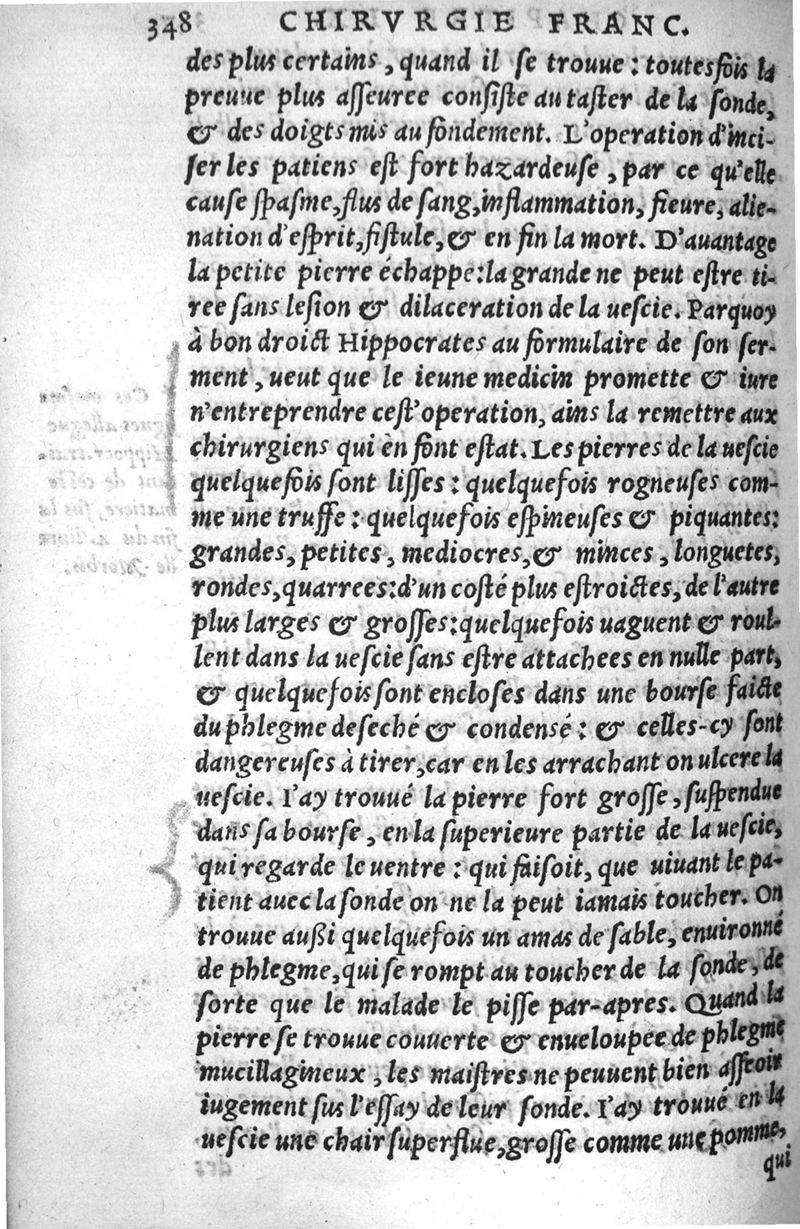 348 CHIRVRGIE FRANC.
des plus certains, quand il se trouue: toutesfois la
preuue plus asseuree consiste au taster de la sonde,
& des doigts mis au fondement. L'operation d'inci-
ser les patiens est fort hazardeuse, par ce qu'elle
cause spasme, flus de sang, inflammation, fieure, alie-
nation d'esprit, fistule, & en fin la mort. D'auantage
la petite pierre échappe: la grande ne peut estre ti-
ree sans lesion & dilaceration de la uescie. Parquoy
à bon droict Hippocrates au formulaire de son ser-
ment, ueut que le ieune medicin promette & iure
n'entreprendre cest'operation, ains la remettre aux
chirurgiens qui en font estat. Les pierres de la uescie
quelquefois sont lisses: quelquefois rogneuses com-
me une truffe: quelquefois espineuses & piquantes:
grandes, petites, mediocres, & minces, longuetes,
rondes, quarrees: d'un costé plus estroictes, de l'autre
plus larges & grosses: quelquefois uaguent & roul-
lent dans la uescie sans estre attachees en nulle part,
& quelquefois sont encloses dans une bourse faicte
du phlegme deseché & condensé: & celles-cy sont
dangereuses à tirer, car en les arrachant on ulcere la
uescie. I'ay trouué la pierre fort grosse, suspendue
dans sa bourse, en la superieure partie de la uescie,
qui regarde le uentre: qui faisoit, que uiuant le pa-
tient auec la sonde on ne la peut iamais toucher. On
trouue außi quelquefois un amas de sable, enuironné
de phlegme, qui se rompt au toucher de la sonde, de
sorte que le malade le pisse par-apres. Quand la
pierre se trouue couuerte & enueloupee de phlegme
mucillagineux, les maistres ne peuuent bien asseoir
iugement sus l'essay de leur sonde. I'ay trouué en la
uescie une chair superflue, grosse comme une pomme,
qui